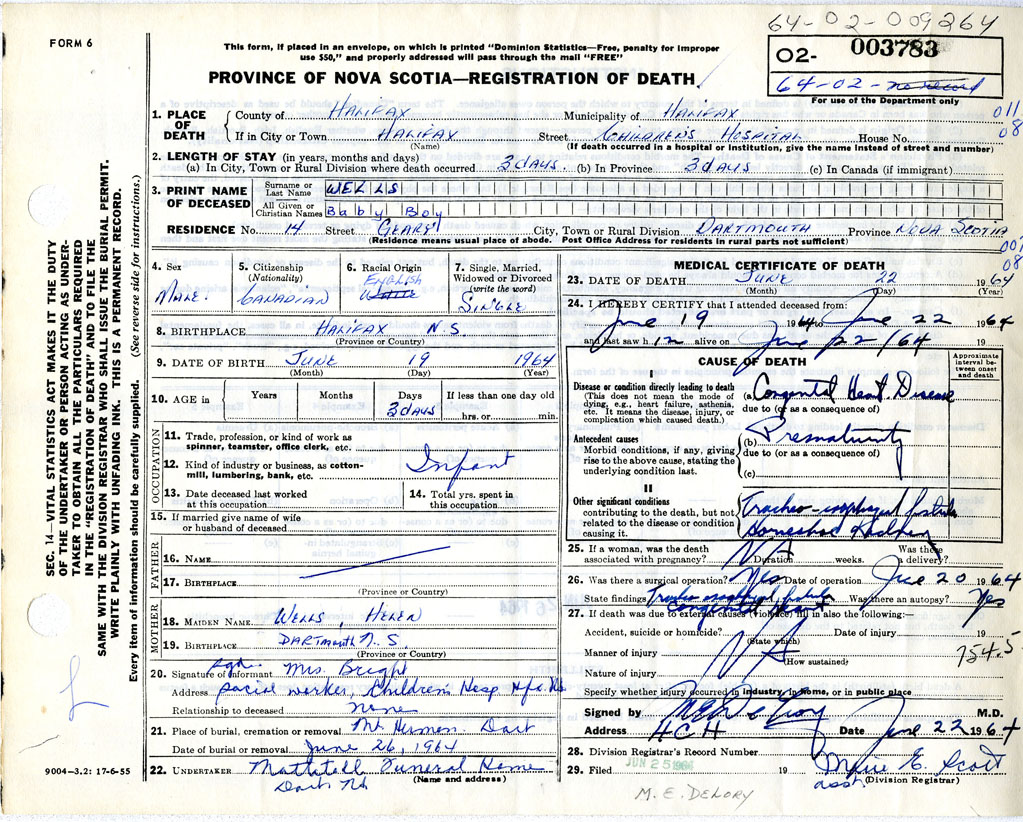 64-02-009264
FORM 6
This form, if placed in an envelope, on which is printed "Dominion Statistics—Free, penalty for improper
use $50," and properly addressed will pass through the mail "FREE"
02- 003783
64-02-no record
For use of the Department only
PROVINCE OF NOVA SCOTIA—REGISTRATION OF DEATH
1. PLACE OF DEATH County of HALIFAX Municipality of HALIFAX 011
If in City or Town HALIFAX Street CHILDREN'S HOSPITAL House No. 08
(Name) (If death occurred in a hospital or institution, give the name instead of street and number)
2. LENGTH OF STAY (in years, months and days)
(a) In City, Town or Rural Division where death occurred 3 days (b) In Province 3 days (c) In Canada (if immigrant)
3. PRINT NAME OF DECEASED
Surname or Last Name WELLS
All Given or Christian Names Baby Boy
RESIDENCE No. 14 Street GEARY City, Town or Rural Division DARTMOUTH Province NOVA SCOTIA
(Residence means usual place of abode. Post Office Address for residents in rural parts not sufficient)
001
08
4. Sex MALE
5. Citizenship (Nationality) CANADIAN
6. Racial Origin ENGLISH
7. Single, Married, Widowed or Divorced (write the word) SINGLE
8. BIRTHPLACE HALIFAX N.S.
(Province or Country)
9. DATE OF BIRTH JUNE 19 1964
(Month) (Day) (Year)
10. AGE in Years Months Days 3 days If less than one day old hrs. or min.
OCCUPATION
11. Trade, profession, or kind of work as spinner, teamster, office clerk, etc.
12. Kind of industry or business, as cotton-mill, lumbering, bank, etc. Infant
13. Date deceased last worked at this occupation
14. Total yrs. spent in this occupation
15. If married give name of wife or husband of deceased
FATHER
16. NAME
17. BIRTHPLACE
(Province or Country)
MOTHER
18. MAIDEN NAME WELLS, HELEN
19. BIRTHPLACE DARTMOUTH N.S
(Province or Country)
20. Signature of informant sgd. Mrs. Bright
Address social worker, Children's Hosp Hfx. NS
Relationship to deceased none
21. Place of burial, cremation or removal Mt Hermon. Dart
Date of burial or removal June 26, 1964
22. UNDERTAKER Mattatall Funeral Home
(Name and address)
Dart NS
MEDICAL CERTIFICATE OF DEATH
23. DATE OF DEATH JUNE 22 1964
(Month) (Day) (Year)
24. I HEREBY CERTIFY that I attended deceased from:
June 19 1964 to June 22 1964
and last saw h im alive on June 22/64 19
CAUSE OF DEATH
Approximate interval between onset and death
I
Disease or condition directly leading to death
(This does not mean the mode of dying, e.g., heart failure, asthenia, etc. It means the disease, injury, or complication which caused death.)
(a) Congenital Heart Disease
due to (or as a consequence of)
Antecedent causes
Morbid conditions, if any, giving rise to the above cause, stating the underlying condition last.
(b) Prematurity
due to (or as a consequence of)
(c)
II
Other significant conditions
contributing to the death, but not related to the disease or condition causing it.
Tracheo-esophageal fistula
Horseshoe Kidney
25. If a woman, was the death associated with pregnancy? NA Duration weeks. Was there a delivery?
26. Was there a surgical operation? Yes Date of operation June 20 1964
State findings Tracheo esophageal fistula Was there an autopsy? Yes
Congenital Heart
27. If death was due to external causes (violence) fill in also the following:—
Accident, suicide or homicide? Date of injury 19
(State which)
Manner of injury NA 754.5
(How sustained)
Nature of injury
Specify whether injury occurred in industry, in home, or in public place
Signed by M.D.
Address HCH Date June 22 1964
28. Division Registrar's Record Number
JUN 25 1966
29. Filed 19 Marie E. Scott
asst. (Division Registrar)
M. E. DELORY
SEC. 14—VITAL STATISTICS ACT MAKES IT THE DUTY
OF THE UNDERTAKER OR PERSON ACTING AS UNDER-
TAKER TO OBTAIN ALL THE PARTICULARS REQUIRED
IN THE "REGISTRATION OF DEATH" AND TO FILE THE
SAME WITH THE DIVISION REGISTRAR WHO SHALL ISSUE THE BURIAL PERMIT.
WRITE PLAINLY WITH UNFADING INK. THIS IS A PERMANENT RECORD.
Every item of information should be carefully supplied. (See reverse side for instructions.)
9004—3.2: 17-6-55